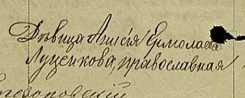 Дѣвица Анисія Ермолаева
Луценкова, православная